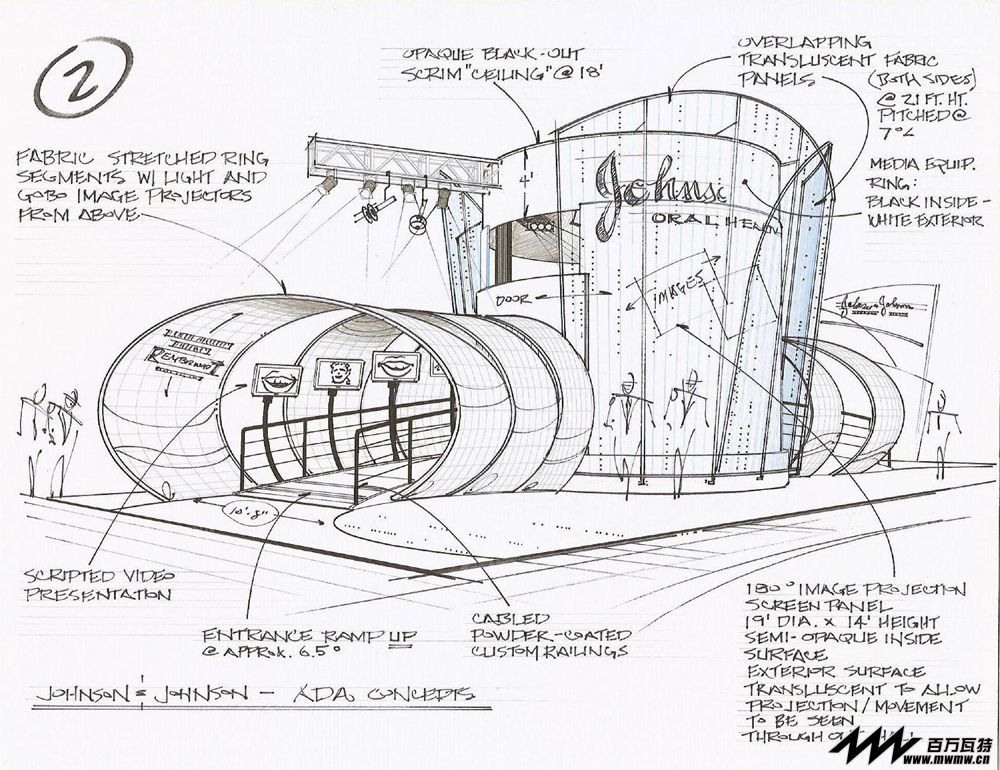 2
OPAQUE BLACK-OUT
SCRIM "CEILING" @ 18'
OVERLAPPING
TRANSLUSCENT FABRIC
PANELS
(BOTH SIDES)
@ 21 FT. HT.
PITCHED @
7°
FABRIC STRETCHED RING
SEGMENTS W/ LIGHT AND
GOBO IMAGE PROJECTORS
FROM ABOVE
MEDIA EQUIP.
RING:
BLACK INSIDE -
WHITE EXTERIOR
4'
Johns
ORAL HEA
DOOR
IMAGES
Johnson & Johnson
REMBRANDT
10'-8"
SCRIPTED VIDEO
PRESENTATION
ENTRANCE RAMP UP
@ APPRX. 6.5°
CABLED
POWDER-COATED
CUSTOM RAILINGS
180° IMAGE PROJECTION
SCREEN PANEL
19' DIA. x 14' HEIGHT
SEMI-OPAQUE INSIDE
SURFACE
EXTERIOR SURFACE
TRANSLUSCENT TO ALLOW
PROJECTION/MOVEMENT
TO BE SEEN
THROUGH
JOHNSON & JOHNSON - ADA CONCEPTS
百万瓦特
www.mwmw.cn